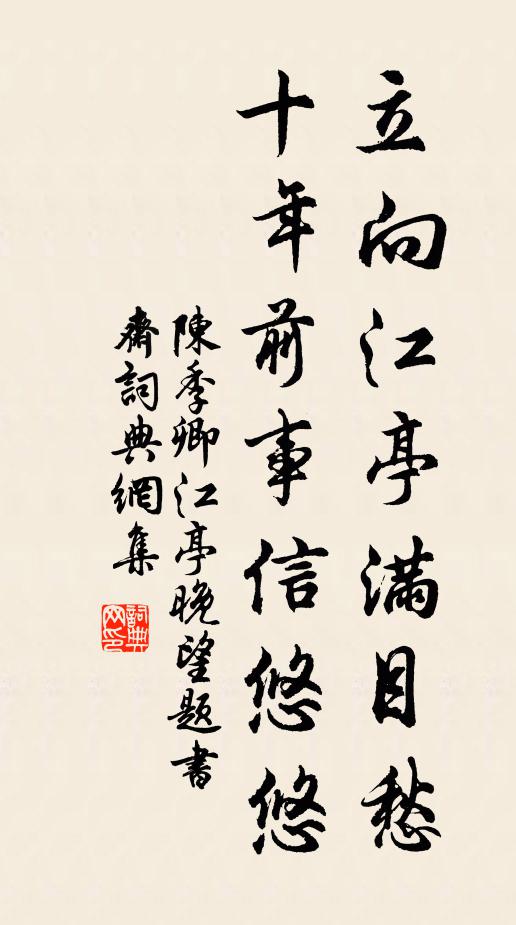 立向江亭滿目愁
十年前事信悠悠
陳季卿江亭晚望題書
齋詞典網集
詞典
网印